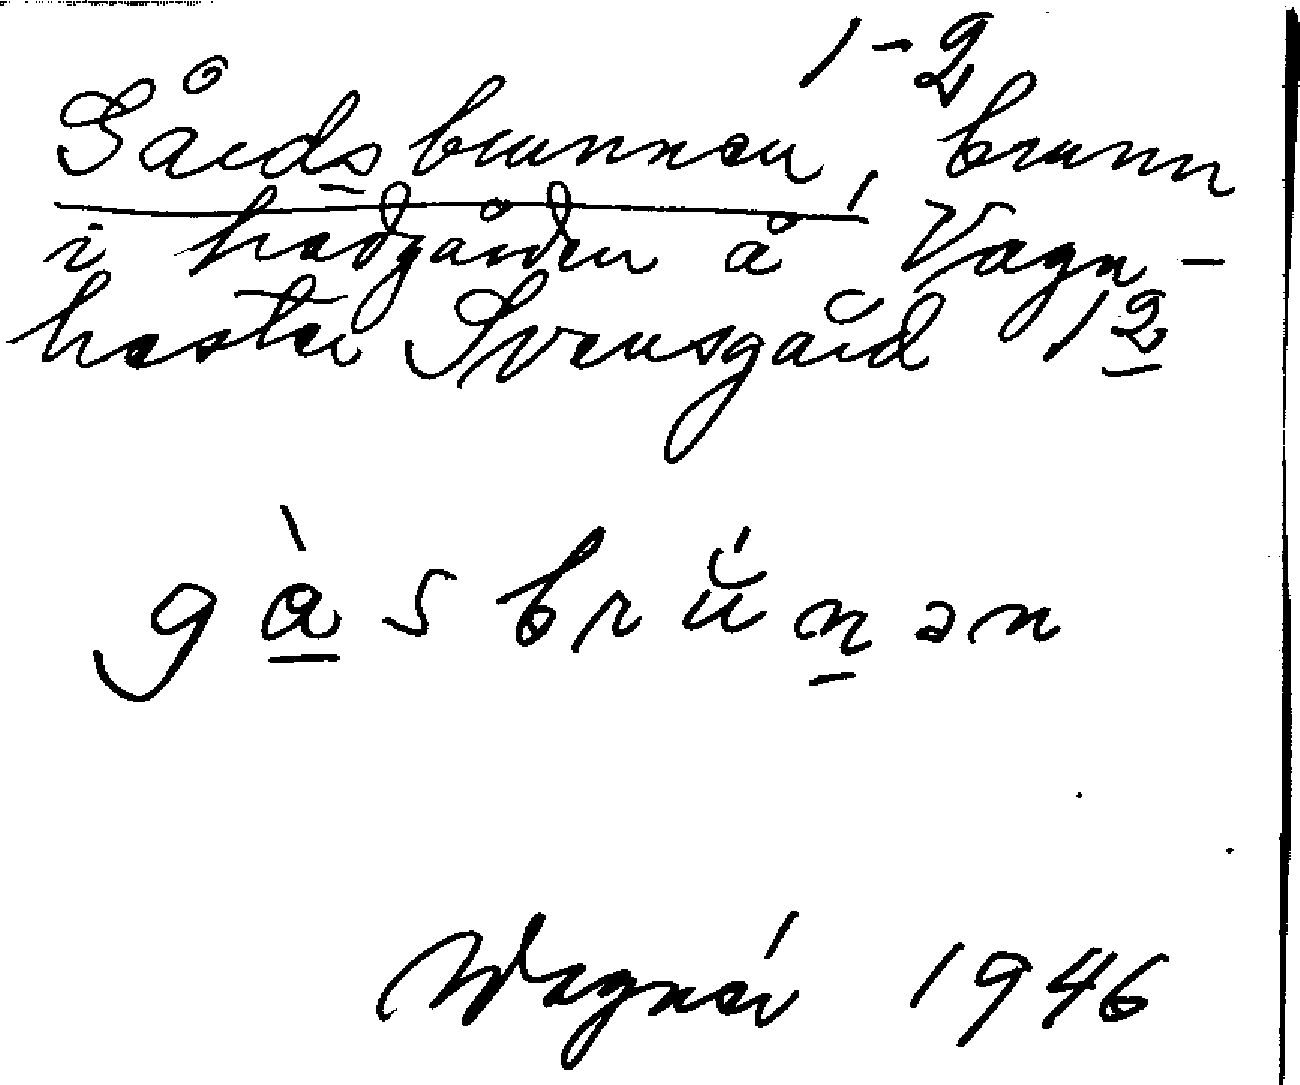 1-2
Gårdsbrunnen, brunn
i trädgården å Vagn-
hester Svensgård 12
gà̱sbrŭ́n̠ən
Wagnér 1946